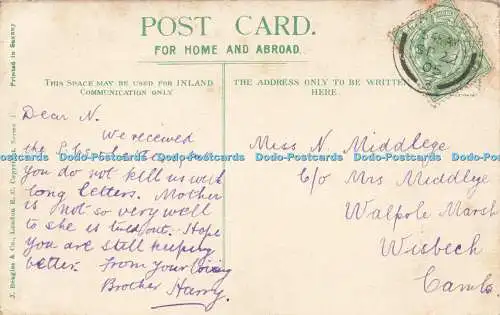 POST CARD.
FOR HOME AND ABROAD.
THIS SPACE MAY BE USED FOR INLAND
COMMUNICATION ONLY
THE ADDRESS ONLY TO BE WRITTEN
HERE.
Dear N.
We received
the
you do not kill us with
long letters. Mother
is not so very well
to she is tired out. Hope
you are still keeping
better. From your loving
Brother Harry
Miss N. Middlege
C/o Mrs Middlege
Walpole Marsh
Wisbech
Cambs.
Printed in Saxony
J. Beagles & Co., London E.C. Copyright.
Dads-Postcards Dads-Postcards Dads-Postcards Dads-Postcards Dads-Postcards Dads-Postcards